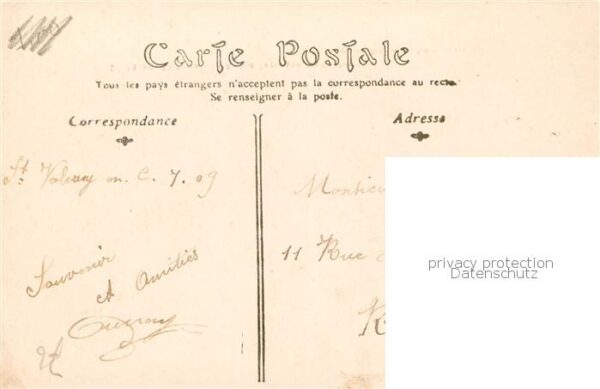 Carte Postale
Tous les pays étrangers n'acceptent pas la correspondance au recto.
Se renseigner à la poste.
Correspondance
Adresse
St. Valery en C. 7. 09
Souvenir
et Amitiés
Monsieu
11 Rue
privacy protection
Datenschutz